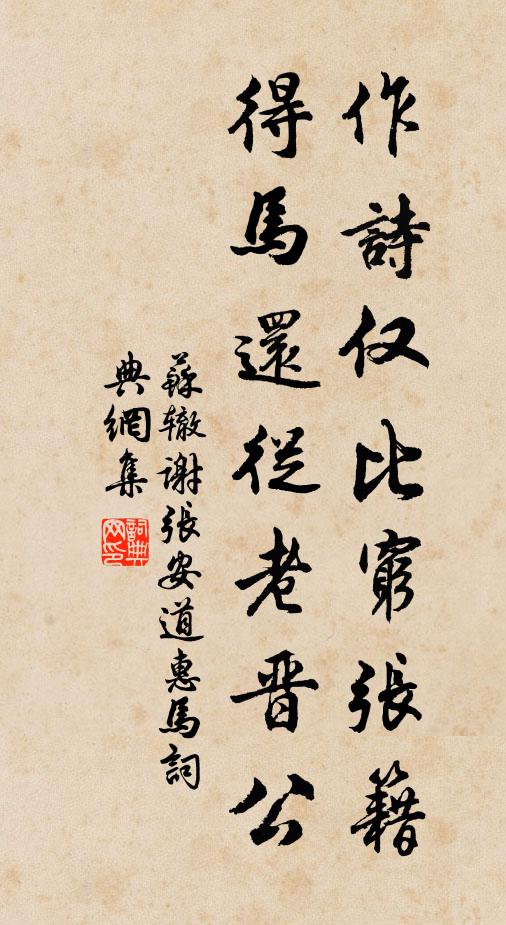 作詩仅比窮張籍
得馬還從老晋公
蘇辙谢張安道惠馬詞
典網集
詞典
网印